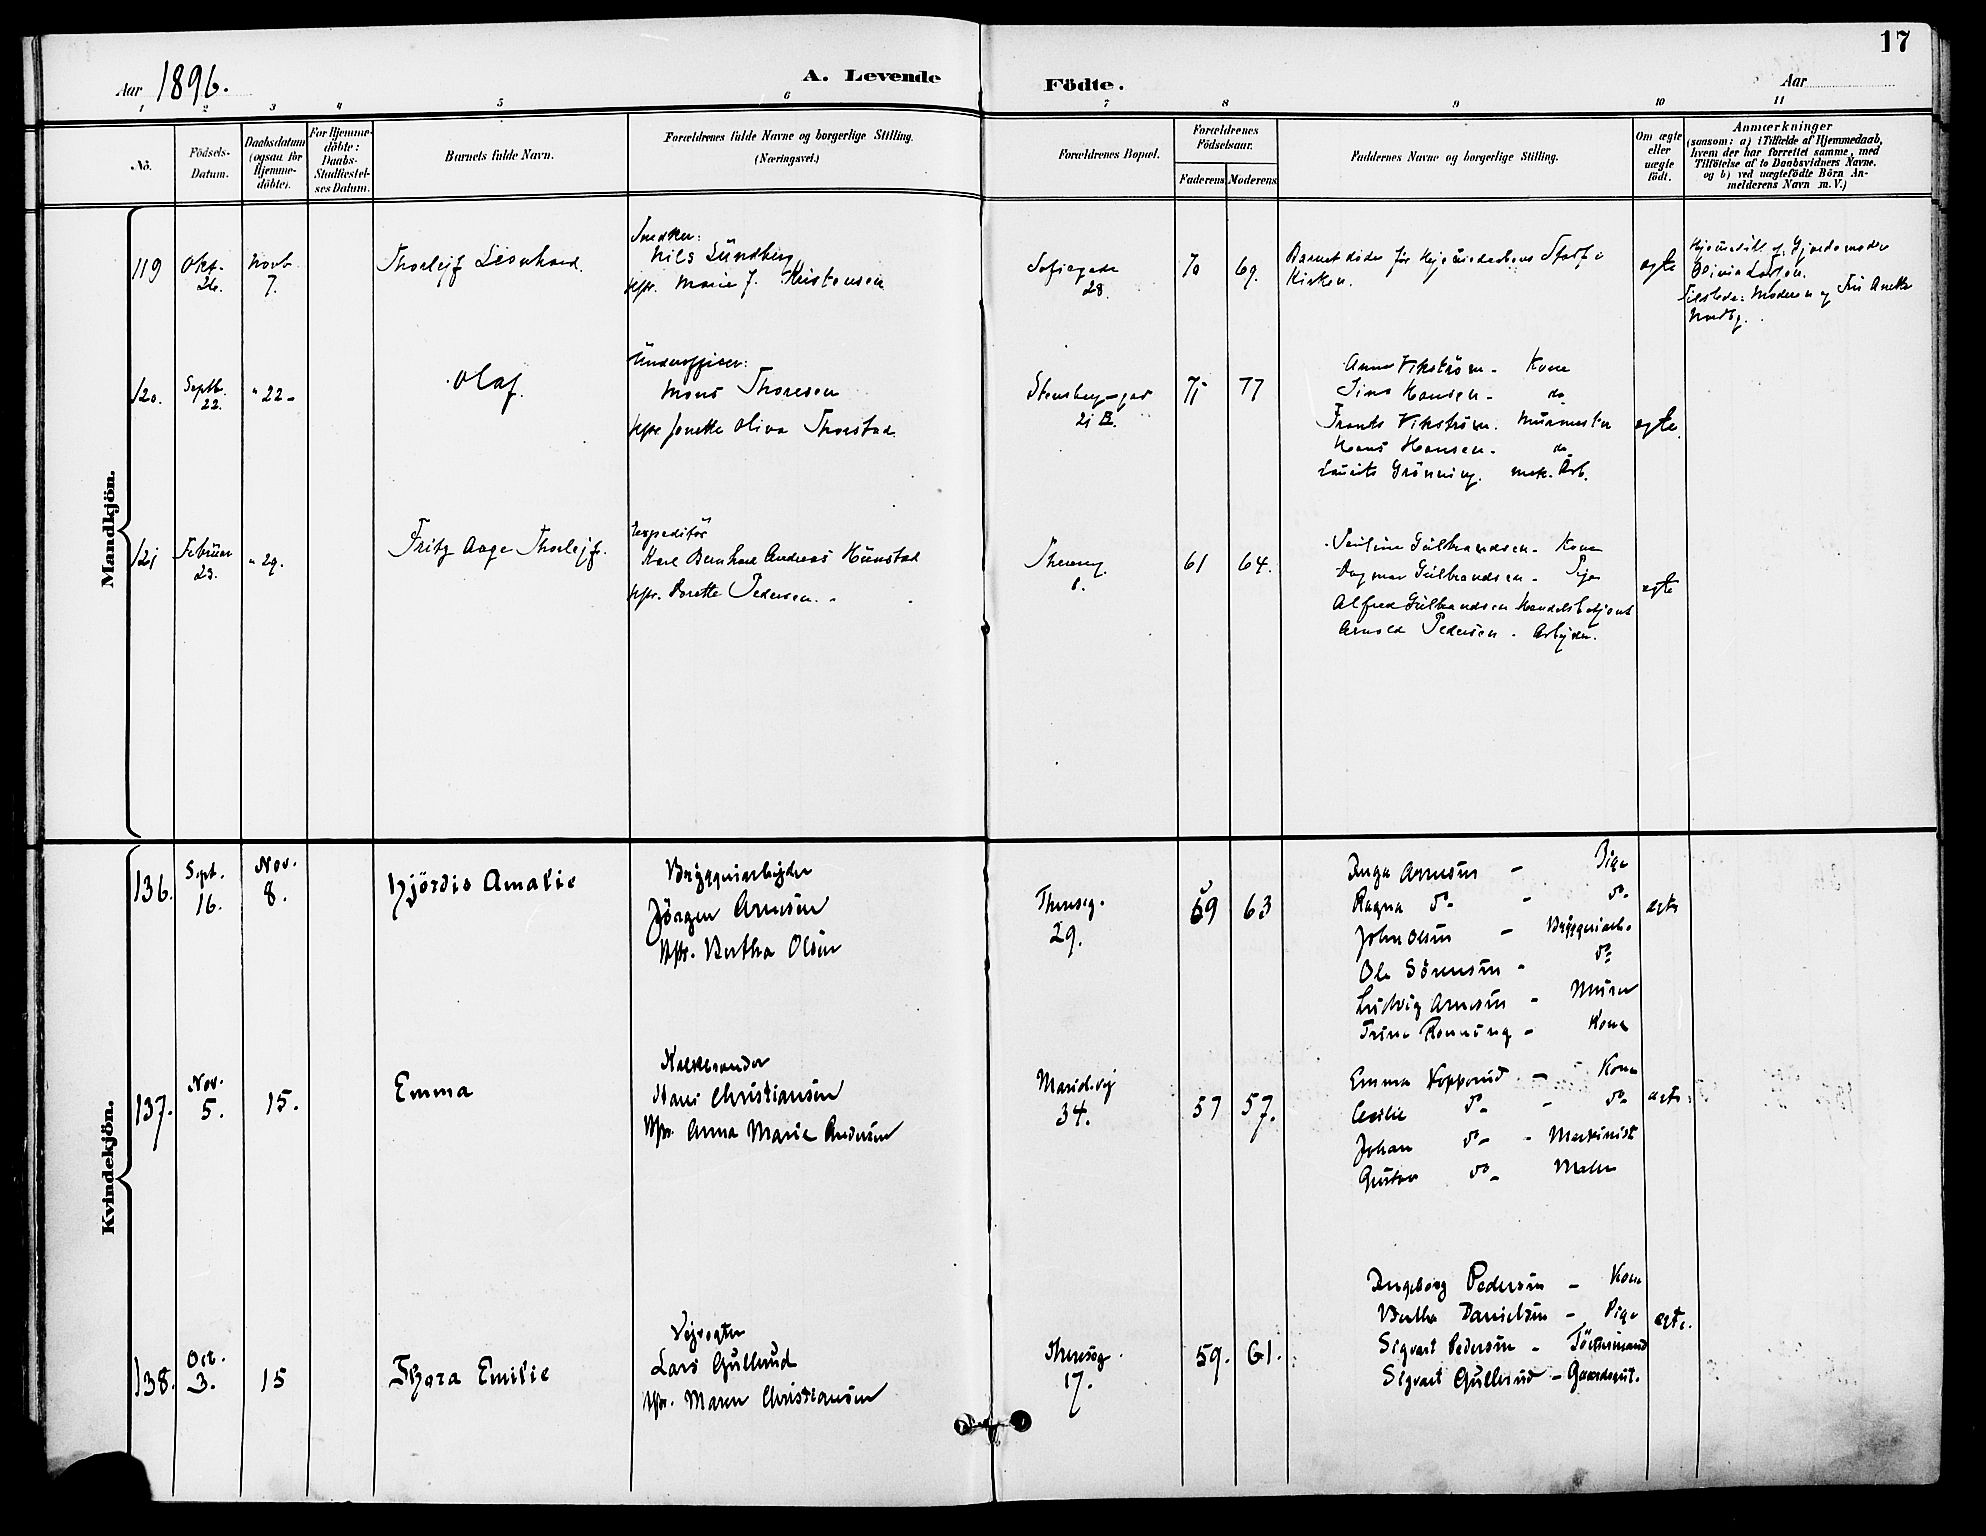 17
Aar 1896.
A. Levende Födte.
Aar
1 2 3 4 5 6 7 8 9 10 11
Nö.
Födsels-
Datum.
Daabsdatum
(ogsaa for
Hjemme-
döbte).
For Hjemme-
döbte:
Daabs-
Stadfæstel-
ses Datum.
Barnets fulde Navn.
Forældrenes fulde Navne og borgerlige Stilling.
(Næringsvei.)
Forældrenes Bopæl.
Forældrenes
Födselsaar.
Faderens Moderens
Faddernes Navne og borgerlige Stilling.
Om ægte
eller
uægte
födt.
Anmærkninger
(saasom: a) i Tilfælde af Hjemmedaab,
hvem der har forrettet samme, med
Tilföielse af to Daabsvidners Navne.
og b) ved uægtefödte Börn An-
melderens Navn m. V.)
Mandkjön.
119
Okt.
26.
Novb.
7.
Thorleif Leonhard.
Snedker:
Nils Lundberg
Hst. Marie J. Kristensen
Sofiegade
28.
70
69.
Barnet døde før Hjemmedaabens Stadf. i
Kirken.
ægte
Hjemmedöbt af Gjordemoder
Olivia Larsen.
Tilstede: Moderen og
120.
Septb.
22.
" 22 -
Olaf.
Underofficer:
Mons Thoresen
Oliva Thorstad.
21 B.
77
Anna Vikström - Kone
Sina Hansen - do
Frants Vikström. Murmester
Hans Hansen - do
Laurits Grönning. mek. Arb.
ægte.
121
Februar
23.
" 29.
Fritz Aage Thorleif.
Expeditör
Karl Bernhard Andreas Hunstad
Dorette Pedersen.
Thereseg.
61
64.
Pauline Gulbrandsen - Kone
Dagmar Gulbrandsen - Pige
Alfred Gulbrandsen Handelsbetjent
Arnold Pedersen - Arbejder.
ægte
Kvindekjön.
136.
Sept.
16.
Nov.
8.
Hjördis Amalie
Bryggeriarbejder
Jörgen Arnesen
Bertha Olsen
Thereseg.
29.
69
63
Inga Arnesen - Pige
Ragna do - do
John Olsen - Bryggeriarb.
Ole Sörensen - do
Ludvig Arnesen - Murer
Trine Rönning - Kone
ægte
137.
Nov.
5.
15.
Emma
Hans Christiansen
Anna Marie Andersen
Maridalsvej
34.
57
57.
Emma Kopperud - Kone
Cecilie do - do
Johan do - Maskinist
Gustav do - Maler
ægte
138.
Oct.
3.
15
Thora Emilie
Vejvogter
Lars Gullerud
Maren Christiansen
Thereseg.
17.
59.
61.
Ingeborg Pedersen - Kone
Bertha Danielsen - Pige
Sigvart Pedersen - Tömmermand
Sigvart Gullerud - Gaardsgut.
ægte.